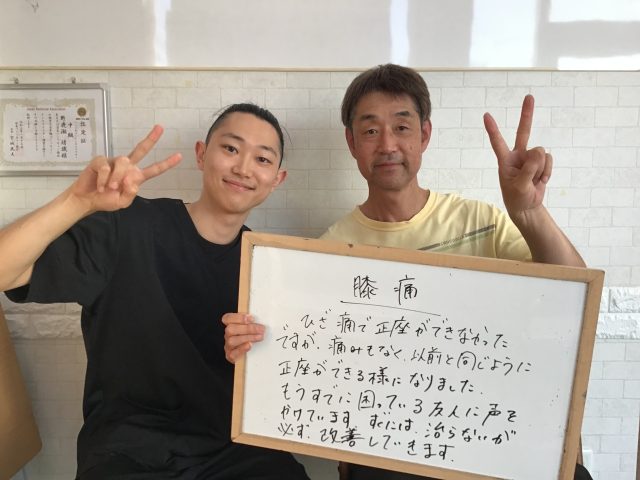 認定証
中級
膝痛
ひざ痛で正座ができなかった
ですが、痛みもなく、以前と同じように
正座ができる様になりました。
もうすでに困っている友人に声を
かけています すぐには治らないが
必ず改善してきます。